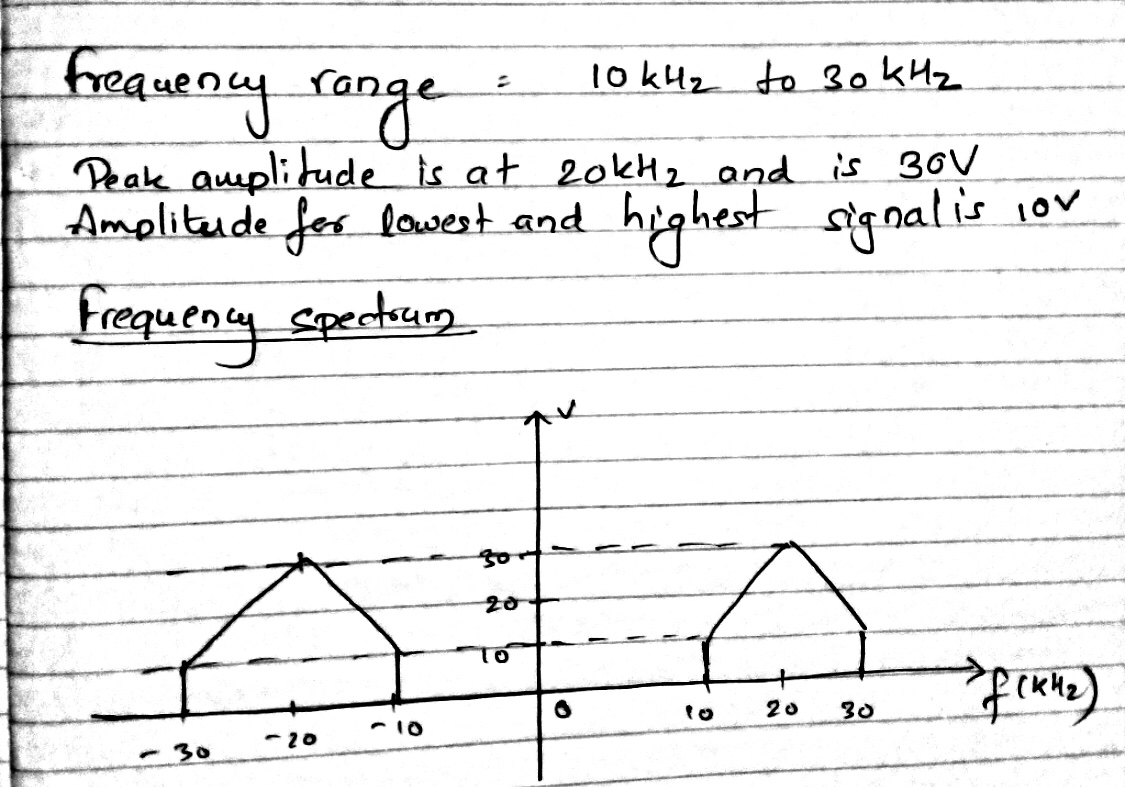 frequency range = 10 kHz to 30 kHz
Peak amplitude is at 20kHz and is 30V
Amplitude for lowest and highest signal is 10V
frequency spectrum
V
30
20
10
f(kHz)
-30 -20 -10 0 10 20 30